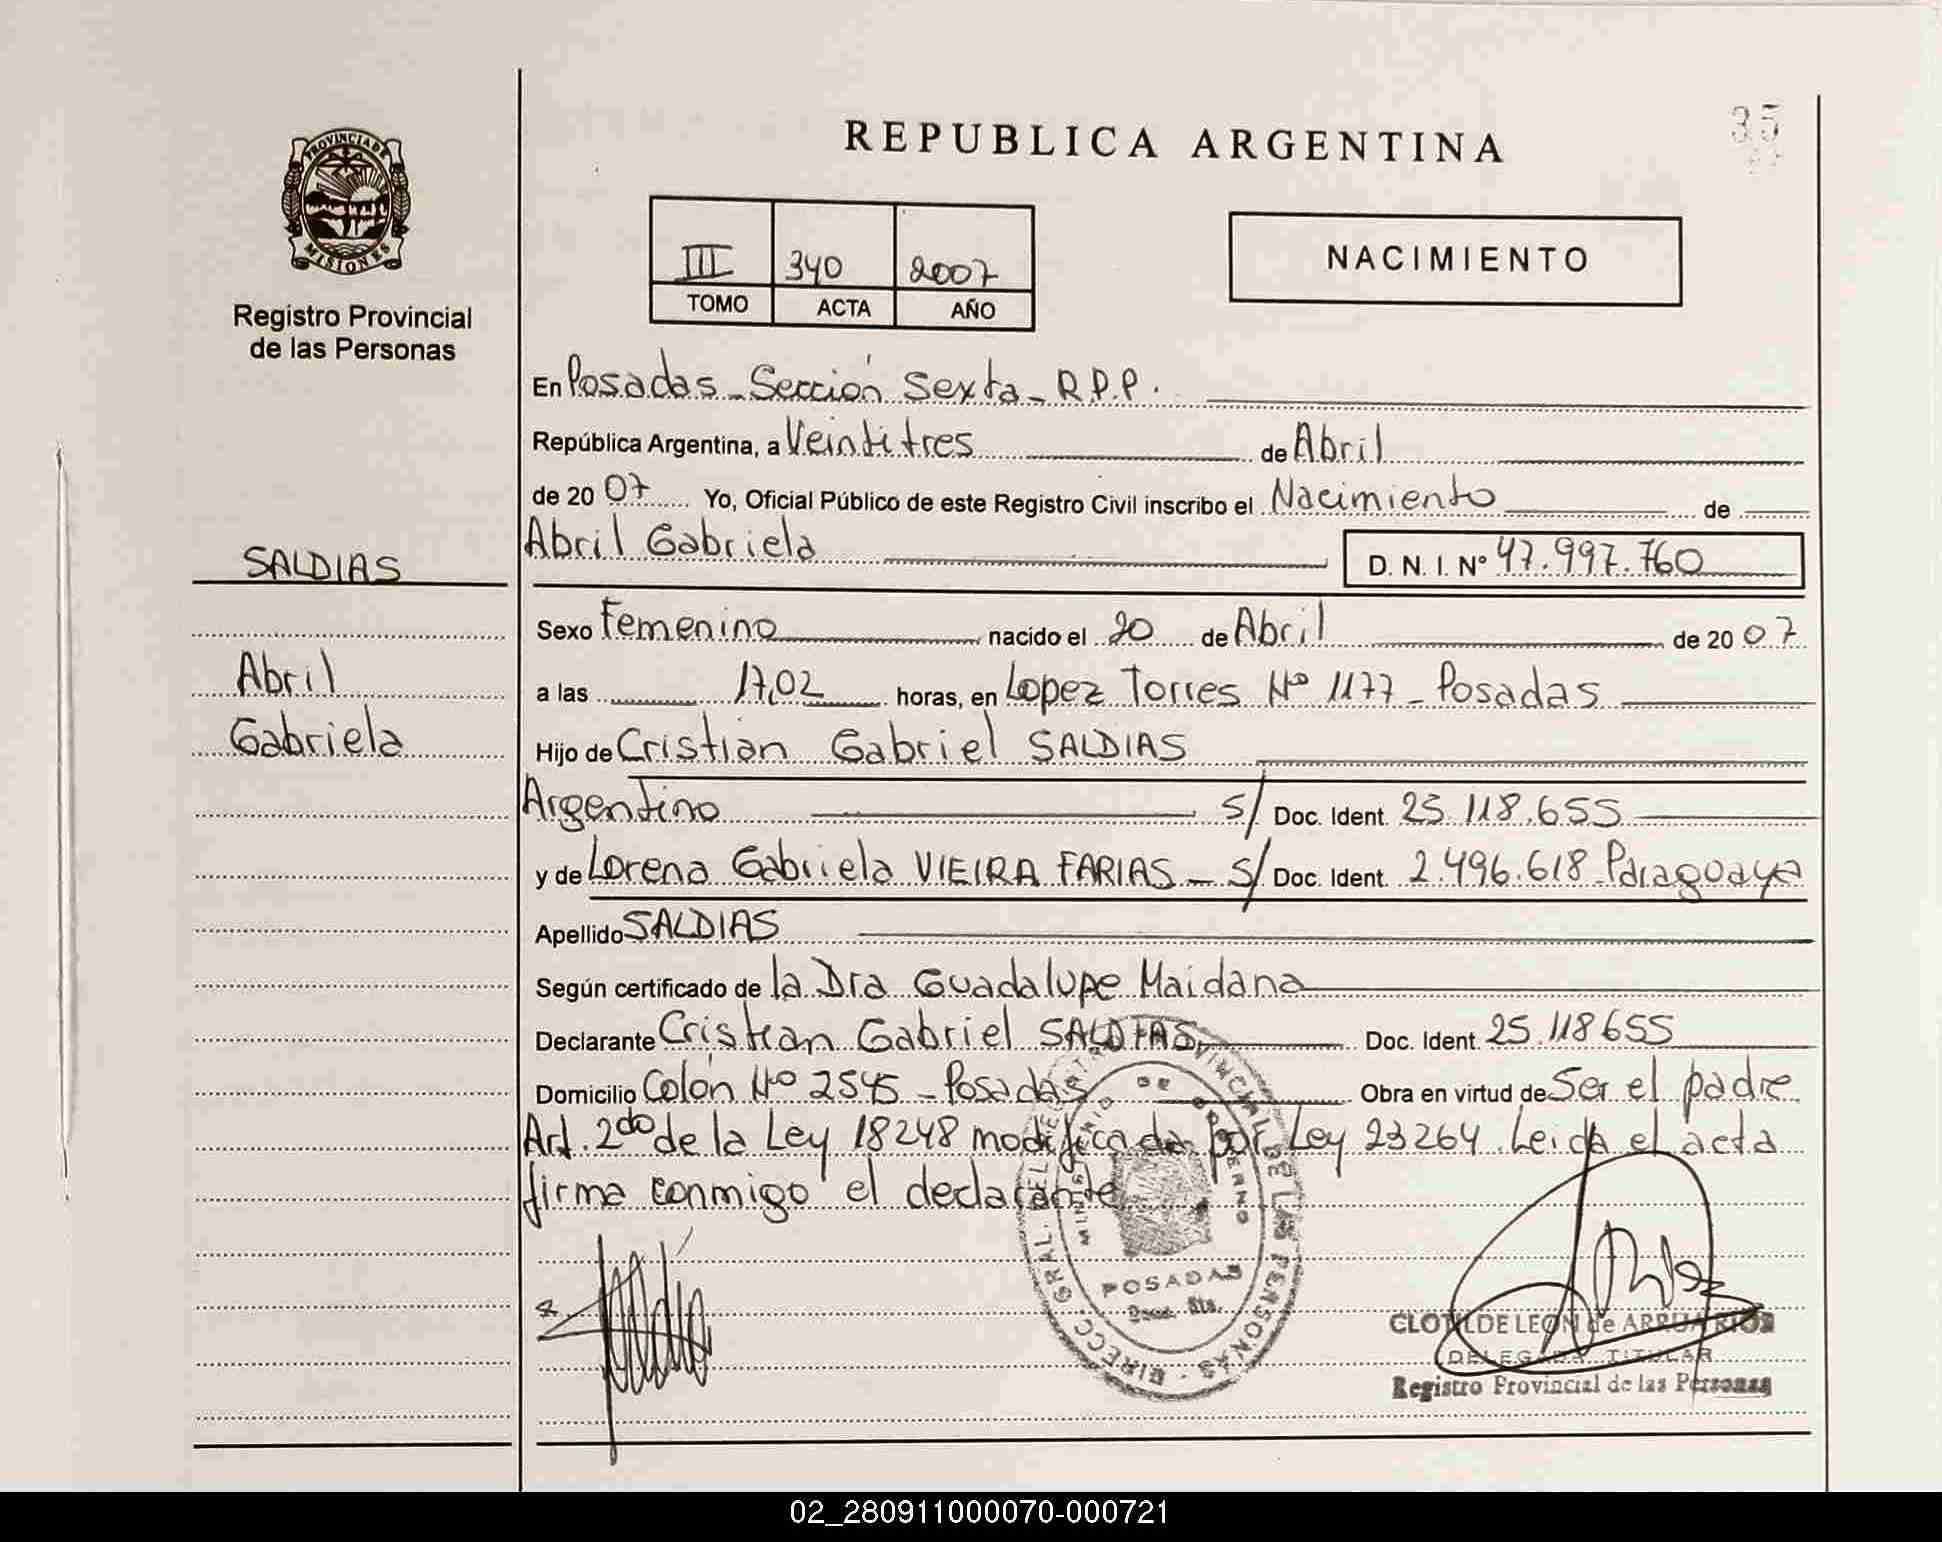 PROVINCIA DE
MISIONES
Registro Provincial
de las Personas
SALDIAS
Abril
Gabriela
35
REPUBLICA ARGENTINA
III 340 2007
TOMO ACTA AÑO
NACIMIENTO
En Posadas - Sección Sexta - R.P.P.
República Argentina, a Veintitres de Abril
de 2007 Yo, Oficial Público de este Registro Civil inscribo el Nacimiento de
Abril Gabriela D. N. I. Nº 47.997.760
Sexo Femenino nacido el 20 de Abril de 2007
a las 17,02 horas, en Lopez Torres Nº 1177 - Posadas
Hijo de Cristian Gabriel SALDIAS
Argentino S/ Doc. Ident. 25.118.655
y de Lorena Gabriela VIEIRA FARIAS - S/ Doc. Ident. 2.496.618 Paraguaya
Apellido SALDIAS
Según certificado de la Dra Guadalupe Maidana
Declarante Cristian Gabriel SALDIAS Doc. Ident. 25.118655
Domicilio Colón Nº 2545 - Posadas Obra en virtud de Ser el padre
Art. 2do de la Ley 18248 modificada por Ley 23264. Leida el acta
firma conmigo el declarante
DIRECC. GRAL. DEL REGISTRO PROVINCIAL DE LAS PERSONAS
MINISTERIO DE GOBIERNO
POSADAS
CLOTILDE LEON de
DELEGADA TITULAR
Registro Provincial de las Personas
02_280911000070-000721